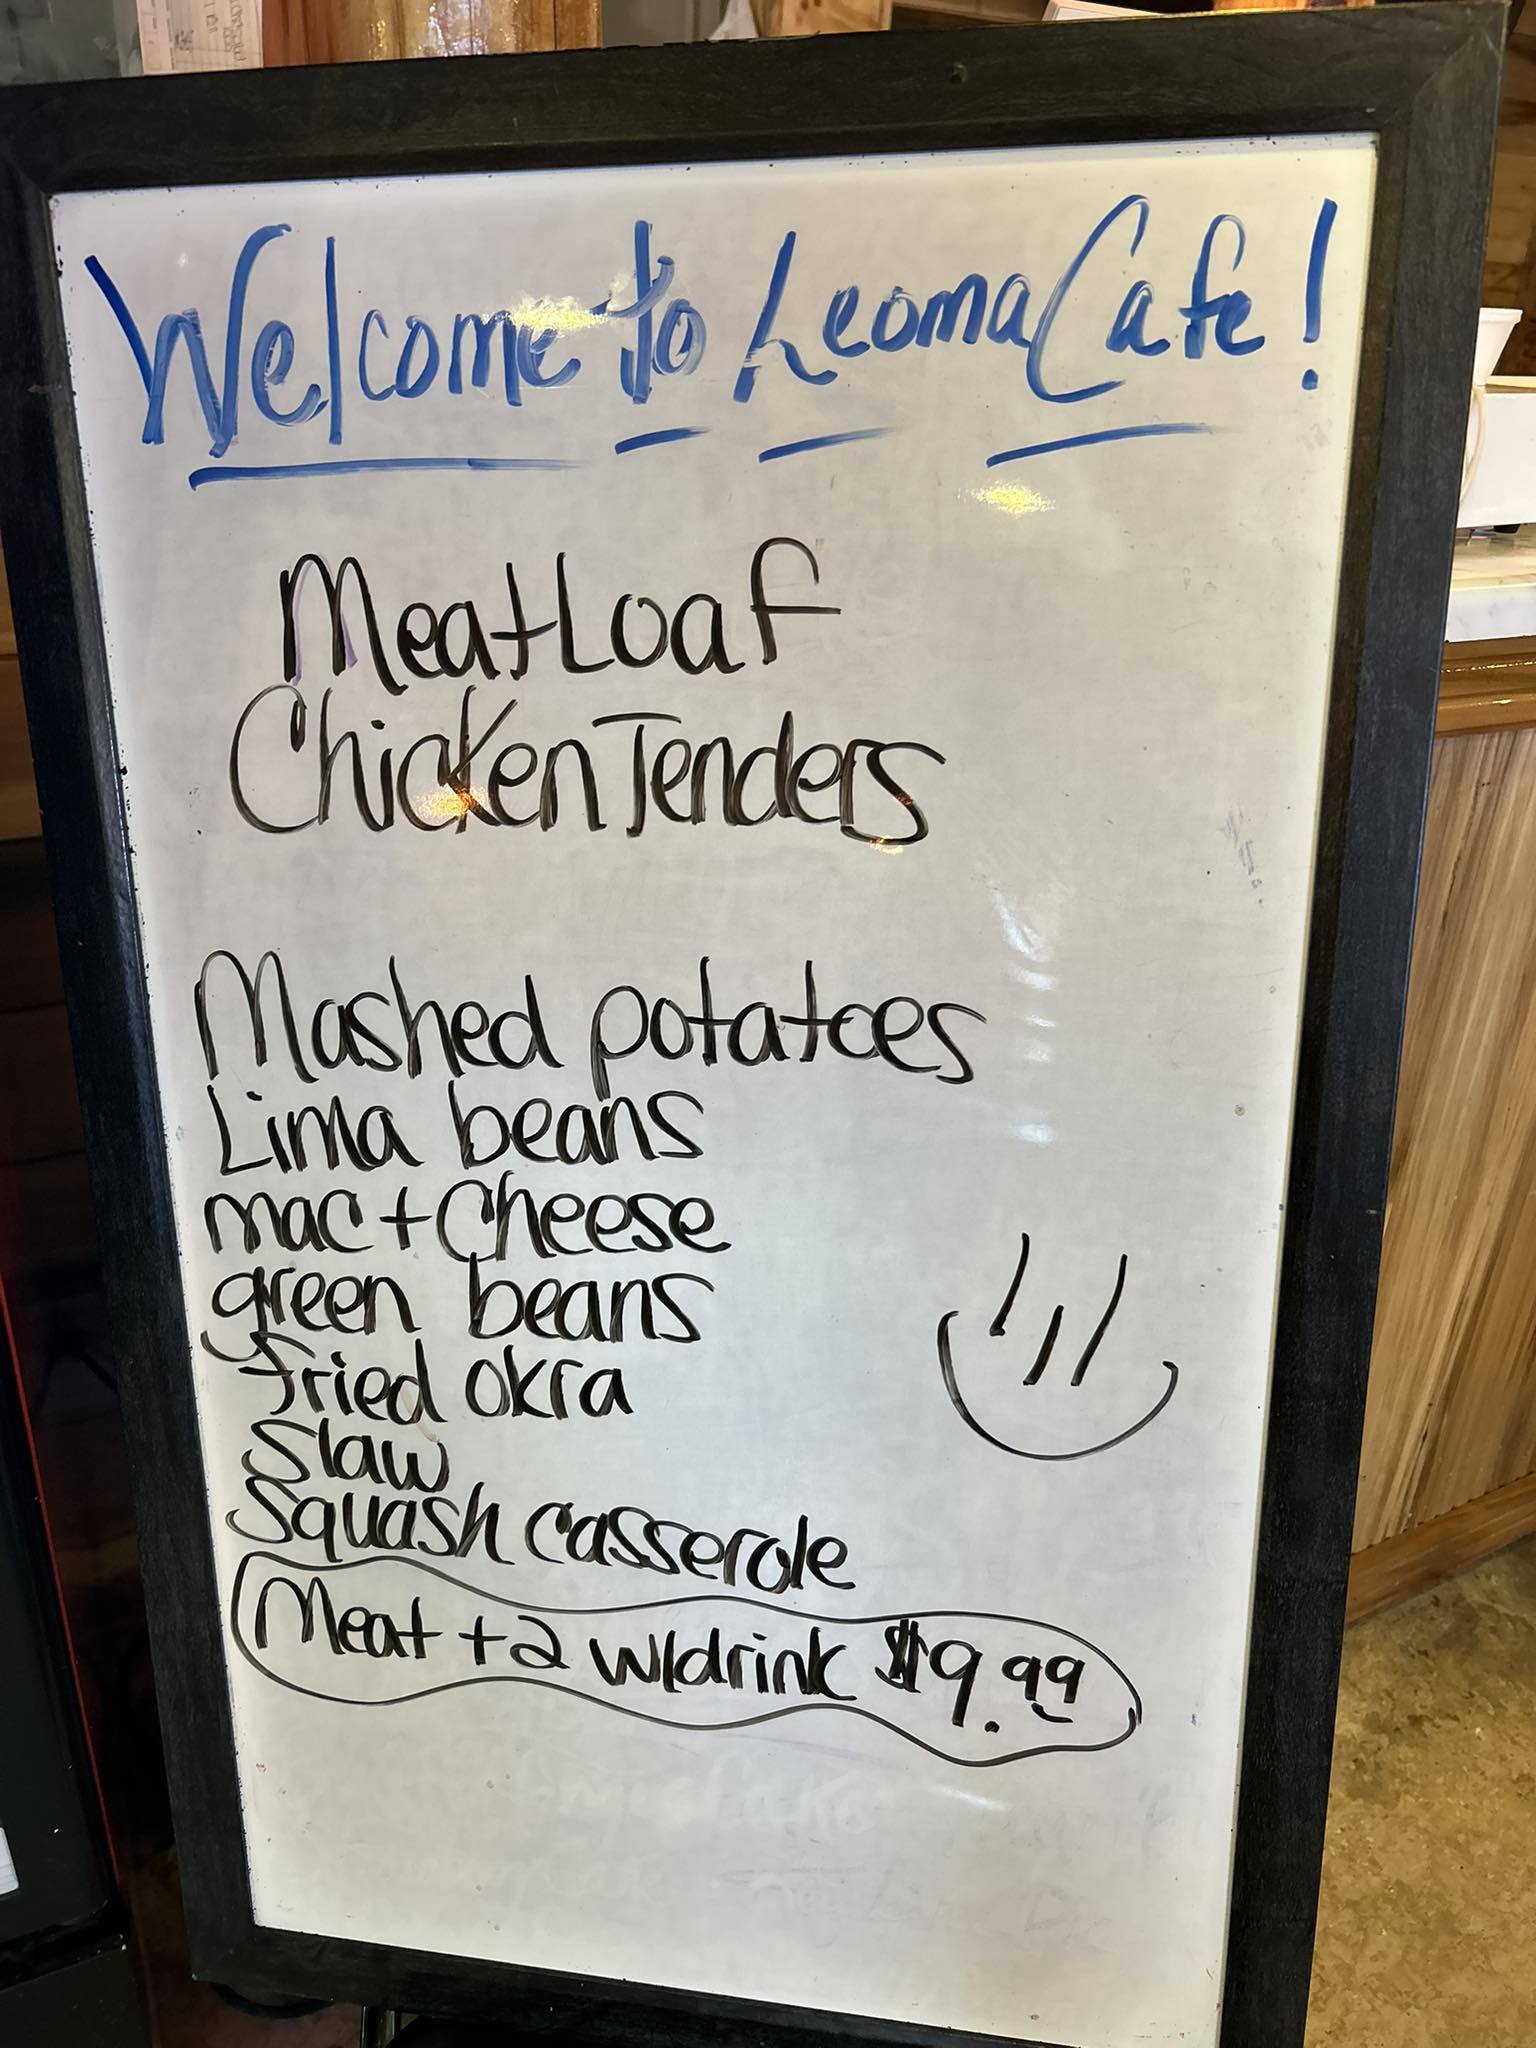 Welcome to Leoma Cafe!
Meat Loaf
Chicken Tenders
Mashed potatoes
Lima beans
mac + Cheese
green beans
fried okra
Slaw
Squash casserole
Meat + 2 w/drink $9.99